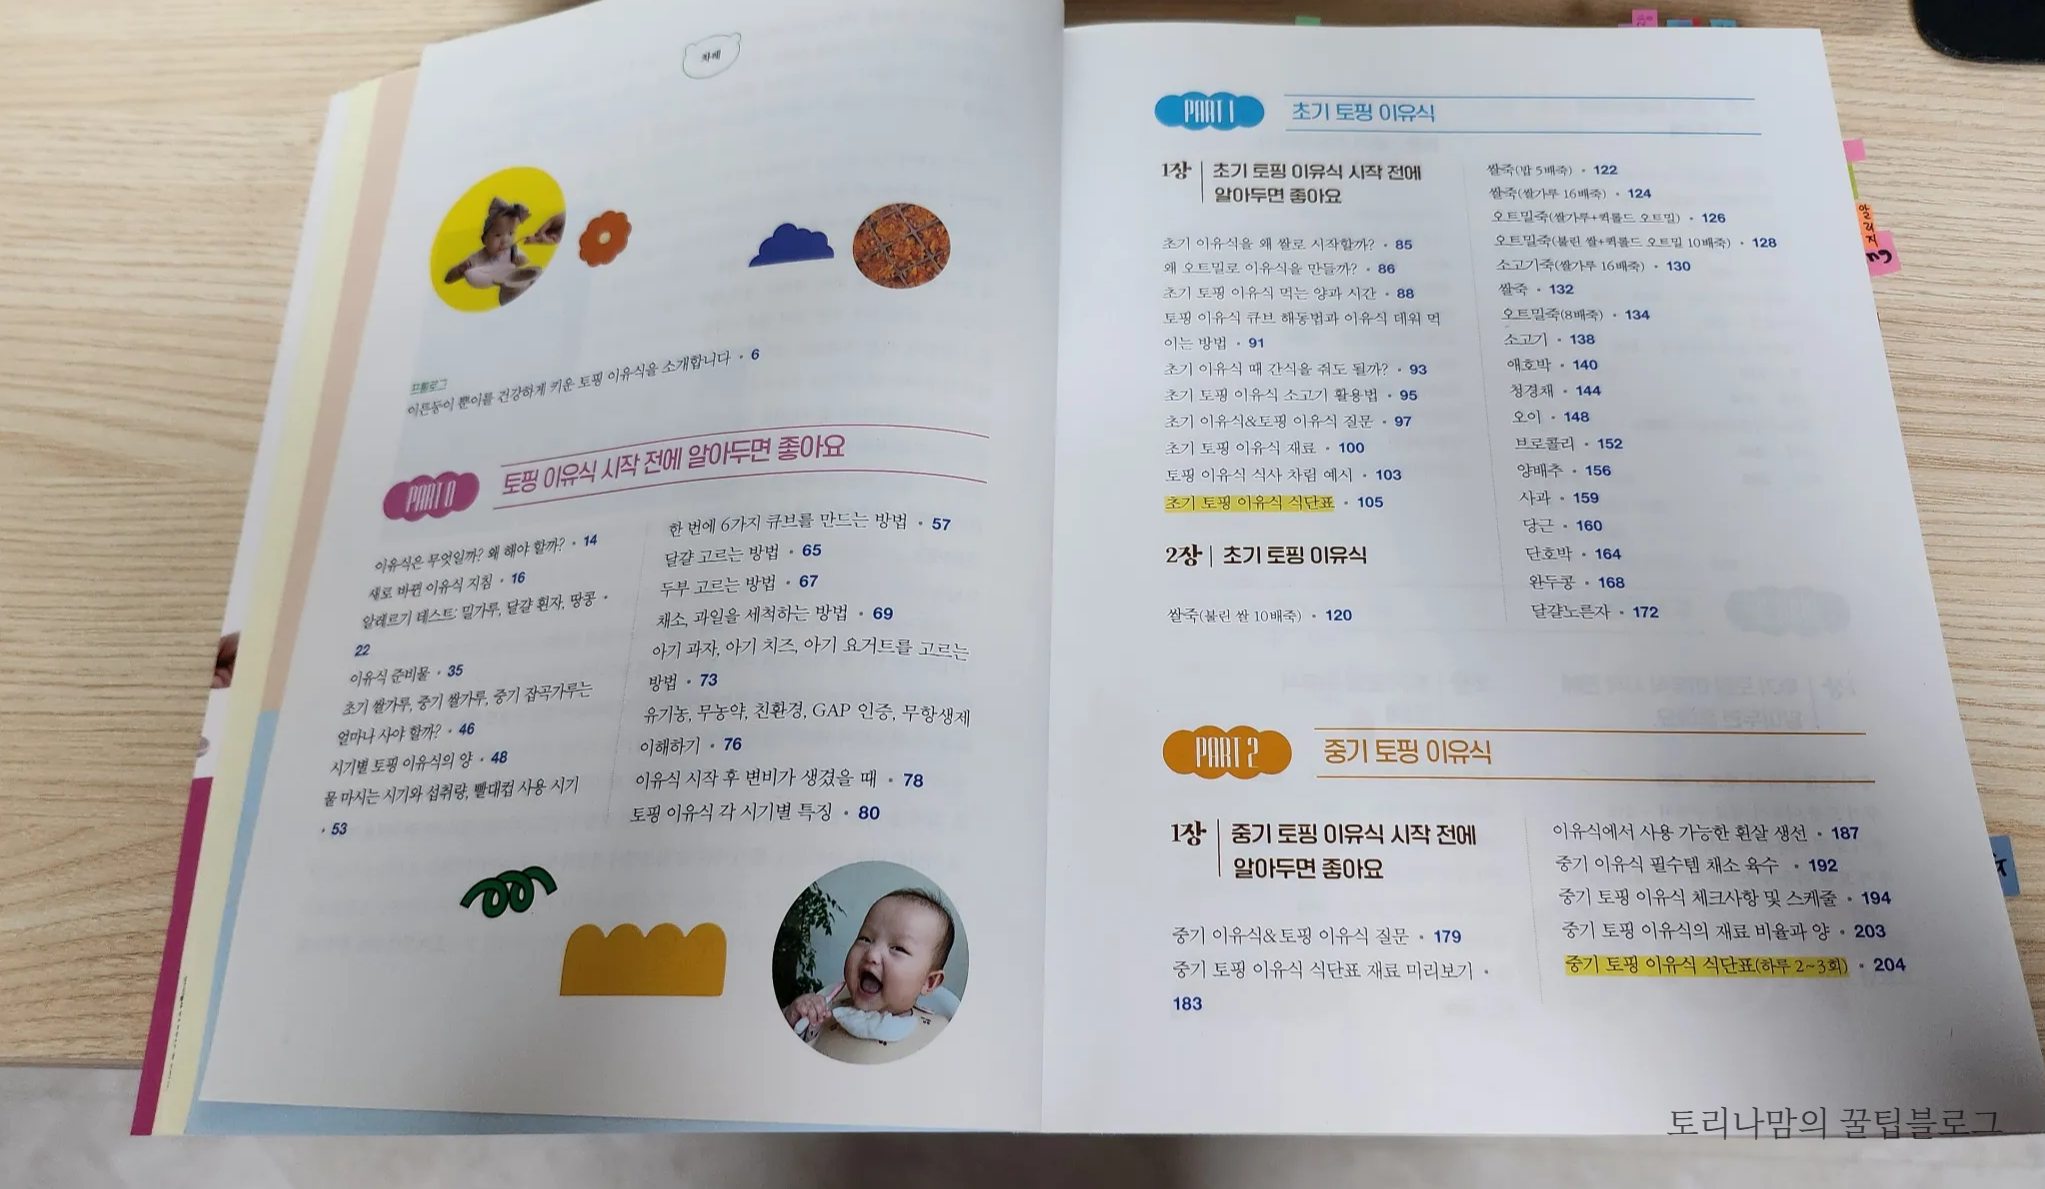 차례
프롤로그
이른둥이 뿐이를 건강하게 키운 토핑 이유식을 소개합니다 • 6
PART 0
토핑 이유식 시작 전에 알아두면 좋아요
이유식은 무엇일까? 왜 해야 할까? • 14
새로 바뀐 이유식 지침 • 16
알레르기 테스트: 밀가루, 달걀 흰자, 땅콩 •
22
이유식 준비물 • 35
초기 쌀가루, 중기 쌀가루, 중기 잡곡가루는
얼마나 사야 할까? • 46
시기별 토핑 이유식의 양 • 48
물 마시는 시기와 섭취량, 빨대컵 사용 시기
• 53
한 번에 6가지 큐브를 만드는 방법 • 57
달걀 고르는 방법 • 65
두부 고르는 방법 • 67
채소, 과일을 세척하는 방법 • 69
아기 과자, 아기 치즈, 아기 요거트를 고르는
방법 • 73
유기농, 무농약, 친환경, GAP 인증, 무항생제
이해하기 • 76
이유식 시작 후 변비가 생겼을 때 • 78
토핑 이유식 각 시기별 특징 • 80
PART 1
초기 토핑 이유식
1장
초기 토핑 이유식 시작 전에
알아두면 좋아요
초기 이유식을 왜 쌀로 시작할까? • 85
왜 오트밀로 이유식을 만들까? • 86
초기 토핑 이유식 먹는 양과 시간 • 88
토핑 이유식 큐브 해동법과 이유식 데워 먹
이는 방법 • 91
초기 이유식 때 간식을 줘도 될까? • 93
초기 토핑 이유식 소고기 활용법 • 95
초기 이유식&토핑 이유식 질문 • 97
초기 토핑 이유식 재료 • 100
토핑 이유식 식사 차림 예시 • 103
초기 토핑 이유식 식단표 • 105
2장
초기 토핑 이유식
쌀죽(불린 쌀 10배죽) • 120
쌀죽(밥 5배죽) • 122
쌀죽(쌀가루 16배죽) • 124
오트밀죽(쌀가루+퀵롤드 오트밀) • 126
오트밀죽(불린 쌀+퀵롤드 오트밀 10배죽) • 128
소고기죽(쌀가루 16배죽) • 130
쌀죽 • 132
오트밀죽(8배죽) • 134
소고기 • 138
애호박 • 140
청경채 • 144
오이 • 148
브로콜리 • 152
양배추 • 156
사과 • 159
당근 • 160
단호박 • 164
완두콩 • 168
달걀노른자 • 172
PART 2
중기 토핑 이유식
1장
중기 토핑 이유식 시작 전에
알아두면 좋아요
중기 이유식&토핑 이유식 질문 • 179
중기 토핑 이유식 식단표 재료 미리보기 •
183
이유식에서 사용 가능한 흰살 생선 • 187
중기 이유식 필수템 채소 육수 • 192
중기 토핑 이유식 체크사항 및 스케줄 • 194
중기 토핑 이유식의 재료 비율과 양 • 203
중기 토핑 이유식 식단표(하루 2~3회) • 204
토리나맘의 꿀팁블로그